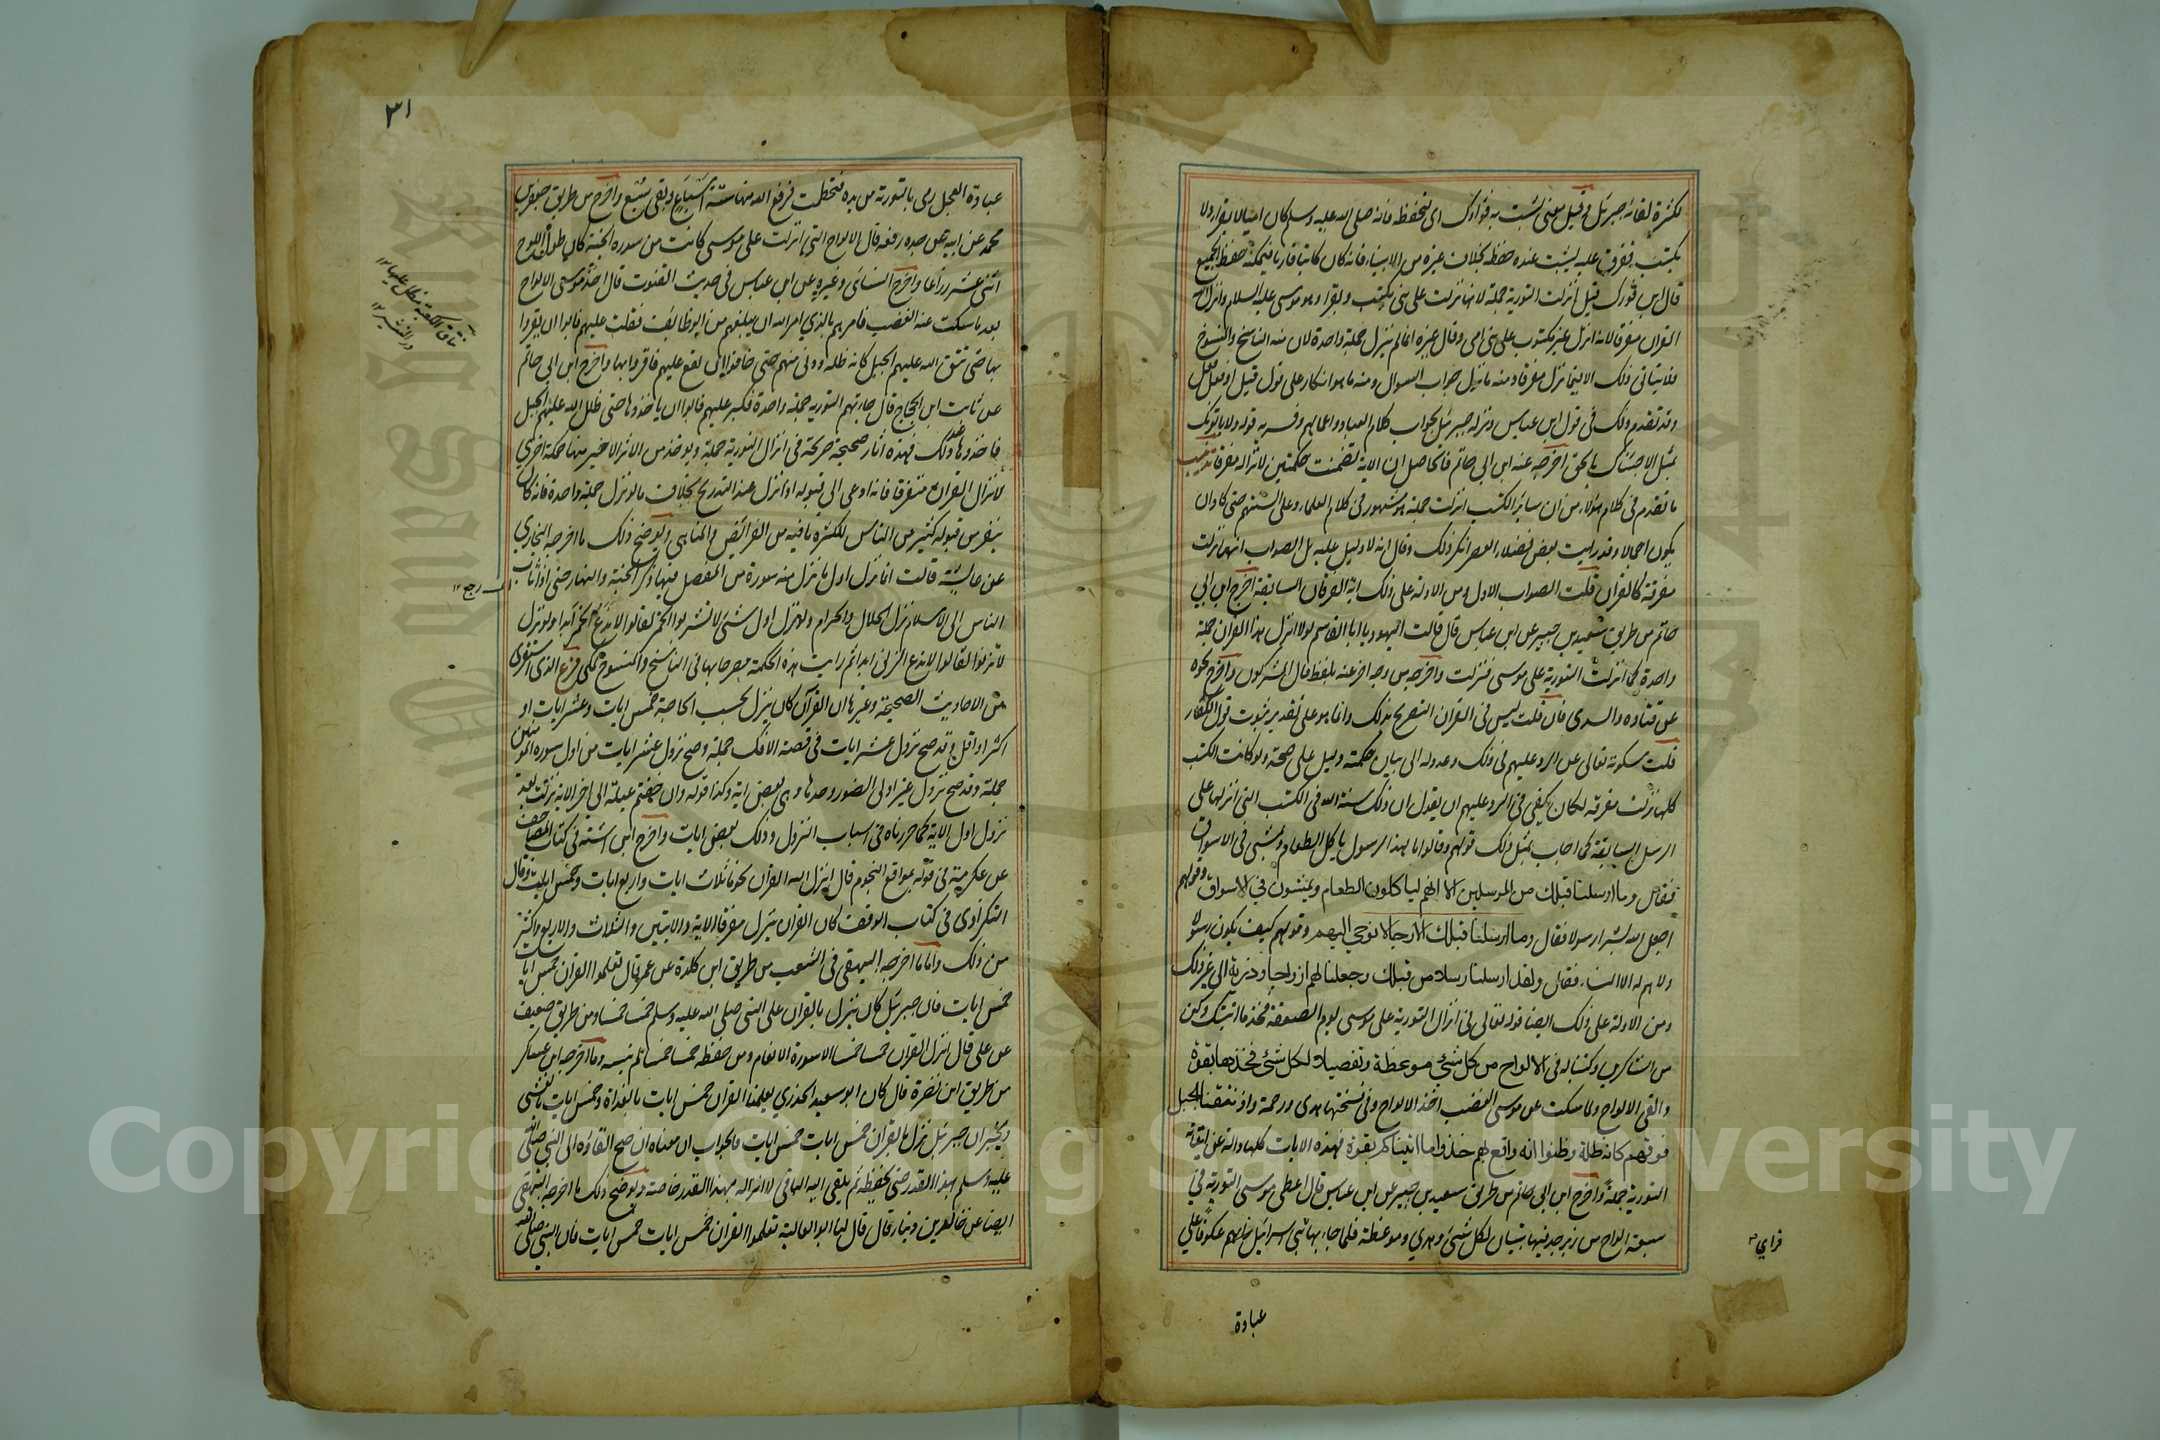 لكثرة لقائه جبرئيل وقيل معنى لنثبت به فؤادك اى لتحفظه فانه صلى الله عليه وسلم كان اميا لا يقرا ولا
يكتب ففرق عليه ليثبت عنده حفظه بخلاف غيره من الانبياء فانه كان كاتبا قاريا فيمكنه حفظ الجميع
قال ابن فورك قيل انزلت التورية جملة لانها نزلت على نبى يكتب ويقرا وهو موسى عليه السلام وانزل الله
القران مفرقا لانه انزل غير مكتوب على نبى امى وقال غيره انما لم ينزل جملة واحدة لان منه الناسخ والمنسوخ
ولا يتاتى ذلك الا فيما نزل مفرقا ومنه ما نزل جواب لسوال ومنه ما هو انكار على قول قيل او فعل فعل
وقد تقدم ذلك فى قول ابن عباس ونزله جبرئيل بجواب كلام العباد واعمالهم وفسر به قوله ولا ياتونك
بمثل الا جئناك بالحق اخرجه عنه ابن ابى حاتم فالحاصل ان الاية تضمنت حكمتين لانزاله مفرقا تذنيب
ما تقدم فى كلام هؤلاء من ان سائر الكتب انزلت جملة هو مشهور فى كلام العلماء وعلى السنتهم حتى كاد ان
يكون اجماعا وقد رايت بعض فضلاء العصر انكر ذلك وقال انه لا دليل عليه بل الصواب انها نزلت
مفرقة كالقران قلت الصواب الاول ومن الادلة على ذلك اية الفرقان السابقة اخرج ابن ابى
حاتم من طريق سعيد بن جبير عن ابن عباس قال قالت اليهود يا ابا القاسم لولا انزل هذا القران جملة
واحدة كما انزلت التورية على موسى فنزلت واخرجه من وجه اخر عنه بلفظ قال المشركون واخرج نحوه
عن قتاده والسدى فان قلت ليس فى القران التصريح بذلك وانما هو على تقدير ثبوت قول الكفار
قلت سكوته تعالى عن الرد عليهم فى ذلك وعدوله الى بيان حكمته دليل على صحته ولو كانت الكتب
كلها نزلت مفرقه لكان يكفى فى الرد عليهم ان يقول ان ذلك سنة الله فى الكتب التى انزلها على
الرسل السابقة كما اجاب بمثل ذلك قولهم وقالوا ما لهذا الرسول ياكل الطعام ويمشى فى الاسواق
فقال وما ارسلنا قبلك من المرسلين الا انهم لياكلون الطعام ويمشون في الاسواق وقولهم
ابعث الله بشرا رسولا فقال وما ارسلنا قبلك الا رجالا نوحي اليهم وقولهم كيف يكون رسولا
ولا هم له الا النساء فقال ولقد ارسلنا رسلا من قبلك وجعلنا لهم ازواجا وذرية الى غير ذلك
ومن الادلة على ذلك ايضا قوله تعالى فى انزال التورية على موسى يوم الصعقة فخذ ما اتيتك وكن
من الشاكرين وكتبنا له فى الالواح من كل شئ موعظة وتفصيلا لكل شئ فخذها بقوة
والقى الالواح ولما سكت عن موسى الغضب اخذ الالواح وفى نسختها هدى ورحمة واذ نتقنا الجبل
فوقهم كانه ظلة وظنوا انه واقع بهم خذوا ما اتيناكم بقوة فهذه الايات كلها دالة عن ايتائه
التورية جملة واخرج ابن ابى حاتم من طريق سعيد بن جبير عن ابن عباس قال اعطى موسى التورية فى
سبعة الواح من زبرجد فيها تبيان لكل شئ وهدى وموعظة فلما جاء بها بنى اسرائيل عكوفا على
عبادة
فراي
٣١
عبادة العجل رمى بالتورية من يده فتحطمت فرفع الله منها ستة اسباع وبقى سبع واخرج من طريق جعفر بن
محمد عن ابيه عن جده رفعه قال الالواح التى انزلت على موسى كانت من سدر الجنة كان طول اللوح
اثنى عشر ذراعا واخرج النسائى وغيره عن ابن عباس فى حديث الفتون قال اخذ موسى الالواح
بعد ما سكت عنه الغضب فامرهم بالذي امر الله ان يبلغهم من الوظائف فثقلت عليهم فابوا ان يقروا
بها حتى نتق الله عليهم الجبل كانه ظلة ودنى منهم حتى خافوا ان يقع عليهم فاقروا بها واخرج ابن ابى حاتم
عن ثابت ابن الحجاج قال جاءتهم التورية جملة واحدة فكبر عليهم فابوا ان ياخذوها حتى ظلل الله عليهم الجبل
فاخذوها عند ذلك فهذه اثار صحيحة صريحة فى انزال التورية جملة ويوخذ من الاثر الاخير منها حكمة اخرى
لانزال القران متفرقا فانه ادعى الى قبوله اذا نزل عند التدريج بخلاف ما لو نزل جملة واحدة فانه كان
ينفر من قبوله كثير من الناس لكثرة ما فيه من الفرائض والمناهى ويوضح ذلك ما اخرجه البخاري
عن عايشة قالت انما نزل اول ما نزل منه سورة من المفصل فيها ذكر الجنة والنار حتى اذا ثاب
الناس الى الاسلام نزل الحلال والحرام ولو نزل اول شئ لا تشربوا الخمر لقالوا لا ندع الخمر ابدا ولو نزل
لا تزنوا لقالوا لا ندع الزنى ابدا ثم رايت هذه الحكمة مصرحا بها فى الناسخ والمنسوخ لمكى فرع الذى استقرى
من الاحاديث الصحيحة وغيرها ان القرآن كان ينزل بحسب الحاجة خمس ايات وعشر ايات او
اكثر او اقل وقد صح نزول عشر ايات فى قصة الافك جملة وصح نزول عشر ايات من اول سورة المؤمنين
جملة وقد صح نزول غير اولى الضرر وحدها وهى بعض اية وكذا قوله وان خفتم عيلة الى اخر الاية نزلت بعد
نزول اول الاية كما حررناه فى اسباب النزول وذلك بعض ايات واخرج ابن اشته فى كتاب المصاحف
عن عكرمة فى قوله بمواقع النجوم قال انزل الله القران نجوما ثلاث ايات واربع ايات وخمس ايات وقال
النكزاوى فى كتاب الوقف كان القران ينزل مفرقا الاية والايتين والثلاث والاربع واكثر
من ذلك واما ما اخرجه البيهقى فى الشعب من طريق ابى خلدة عن عمر قال تعلموا القران خمس ايات
خمس ايات فان جبرئيل كان ينزل بالقران على النبى صلى الله عليه وسلم خمسا خمسا ومن طريق ضعيف
عن على قال انزل القران خمسا خمسا الا سورة الانعام ومن حفظه خمسا خمسا لم ينسه وما اخرجه ابن عساكر
من طريق ابى نضرة قال كان ابو سعيد الخدري يعلمنا القران خمس ايات بالغداة وخمس ايات بالعشى
ويخبر ان جبرئيل نزل بالقران خمس ايات خمس ايات فالجواب ان معناه ان صح القاؤه الى النبى صلى الله
عليه وسلم هذا القدر حتى يحفظه ثم يلقى اليه الباقى لا انزاله بهذا القدر خاصة ويوضح ذلك ما اخرجه البيهقى
ايضا عن خالد بن دينار قال قال لنا ابو العالية تعلموا القران خمس ايات خمس ايات فان النبى صلى الله
رجع ١٢
Copyright © King Saud University